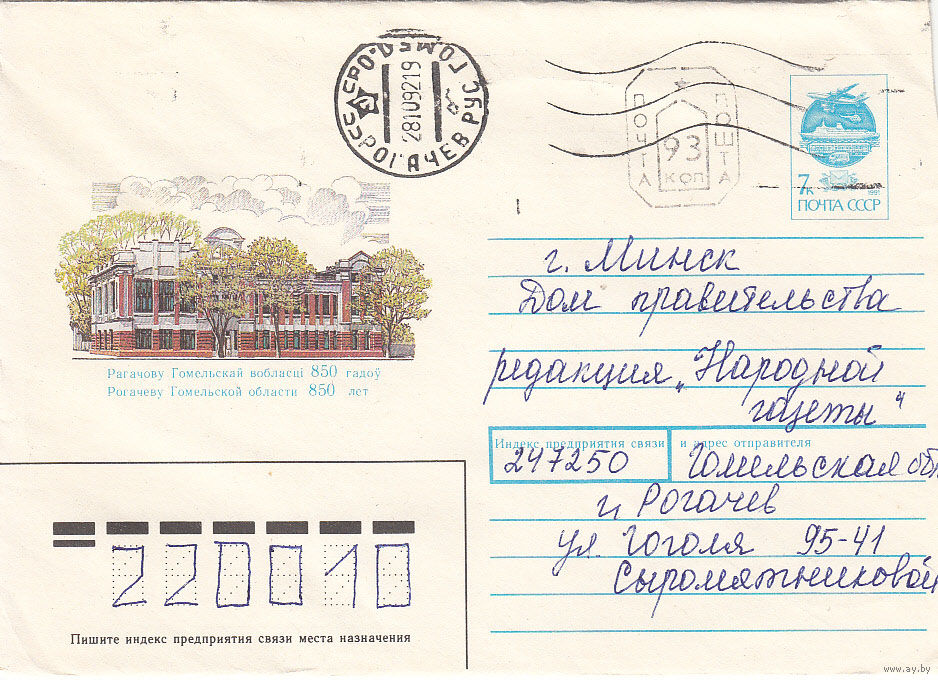 СССР РОГАЧЕВ РУС ГОМЕЛ. О-
2810921 9
ПОЧТА
93
КОП
ПОШТА
7к
1991
ПОЧТА СССР
Рагачову Гомельскай вобласці 850 гадоў
Рогачеву Гомельской области 850 лет
г. Минск
Дом правительства
редакция „Народной
газеты"
Индекс предприятия связи и адрес отправителя
247250 Гомельская обл
г. Рогачев
ул. Гоголя 95-41
Сыромяжниковой
220010
Пишите индекс предприятия связи места назначения
www.ay.by